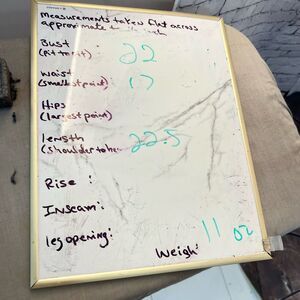 Measurements taken flat across
approximate to
Bust :
(Pit to Pit) 22
Waist :
(smallest point) 17
Hips
(largest point)
Length
(shoulder to hem 22.5
Rise :
Inseam :
leg opening:
Weigh: 11 oz